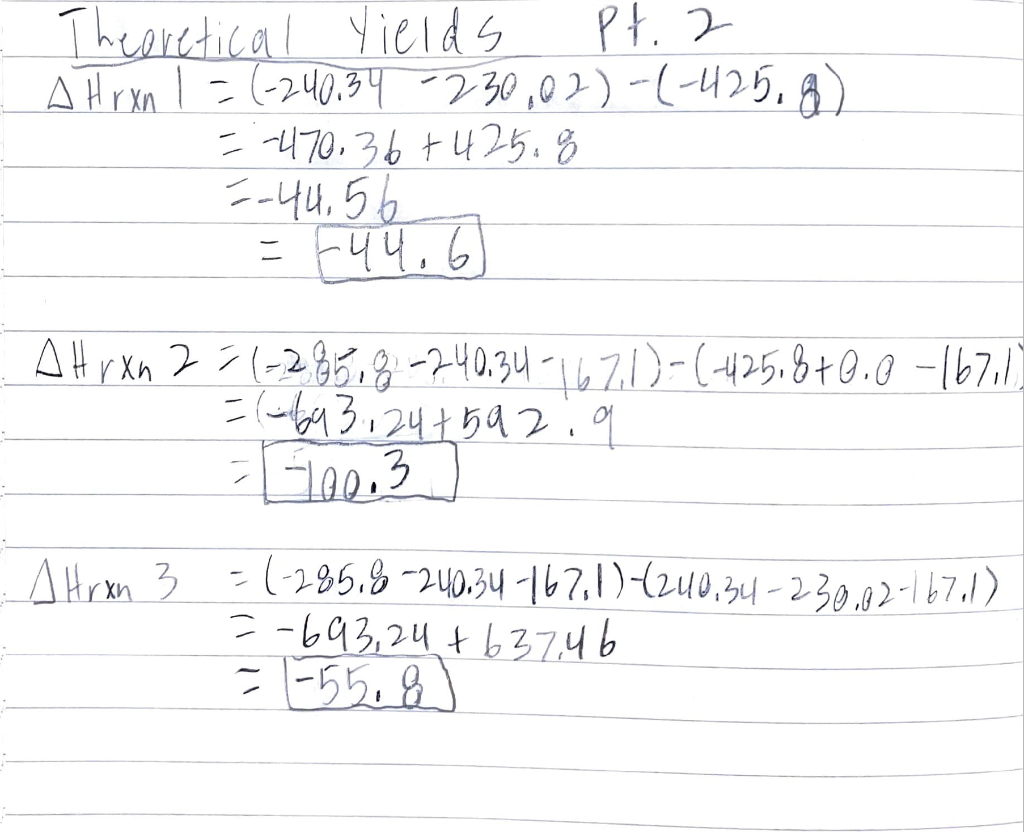 Theoretical Yields Pt. 2
ΔHrxn 1 = (-240.34 -230.02) -(-425.8)
= -470.36 + 425.8
= -44.56
= -44.6
ΔHrxn 2 = (-285.8 -240.34 -167.1)-(-425.8+0.0 -167.1)
= (-693.24+592.9
= -100.3
ΔHrxn 3 = (-285.8 -240.34 -167.1)-(240.34-230.02-167.1)
= -693.24 + 637.46
= -55.8